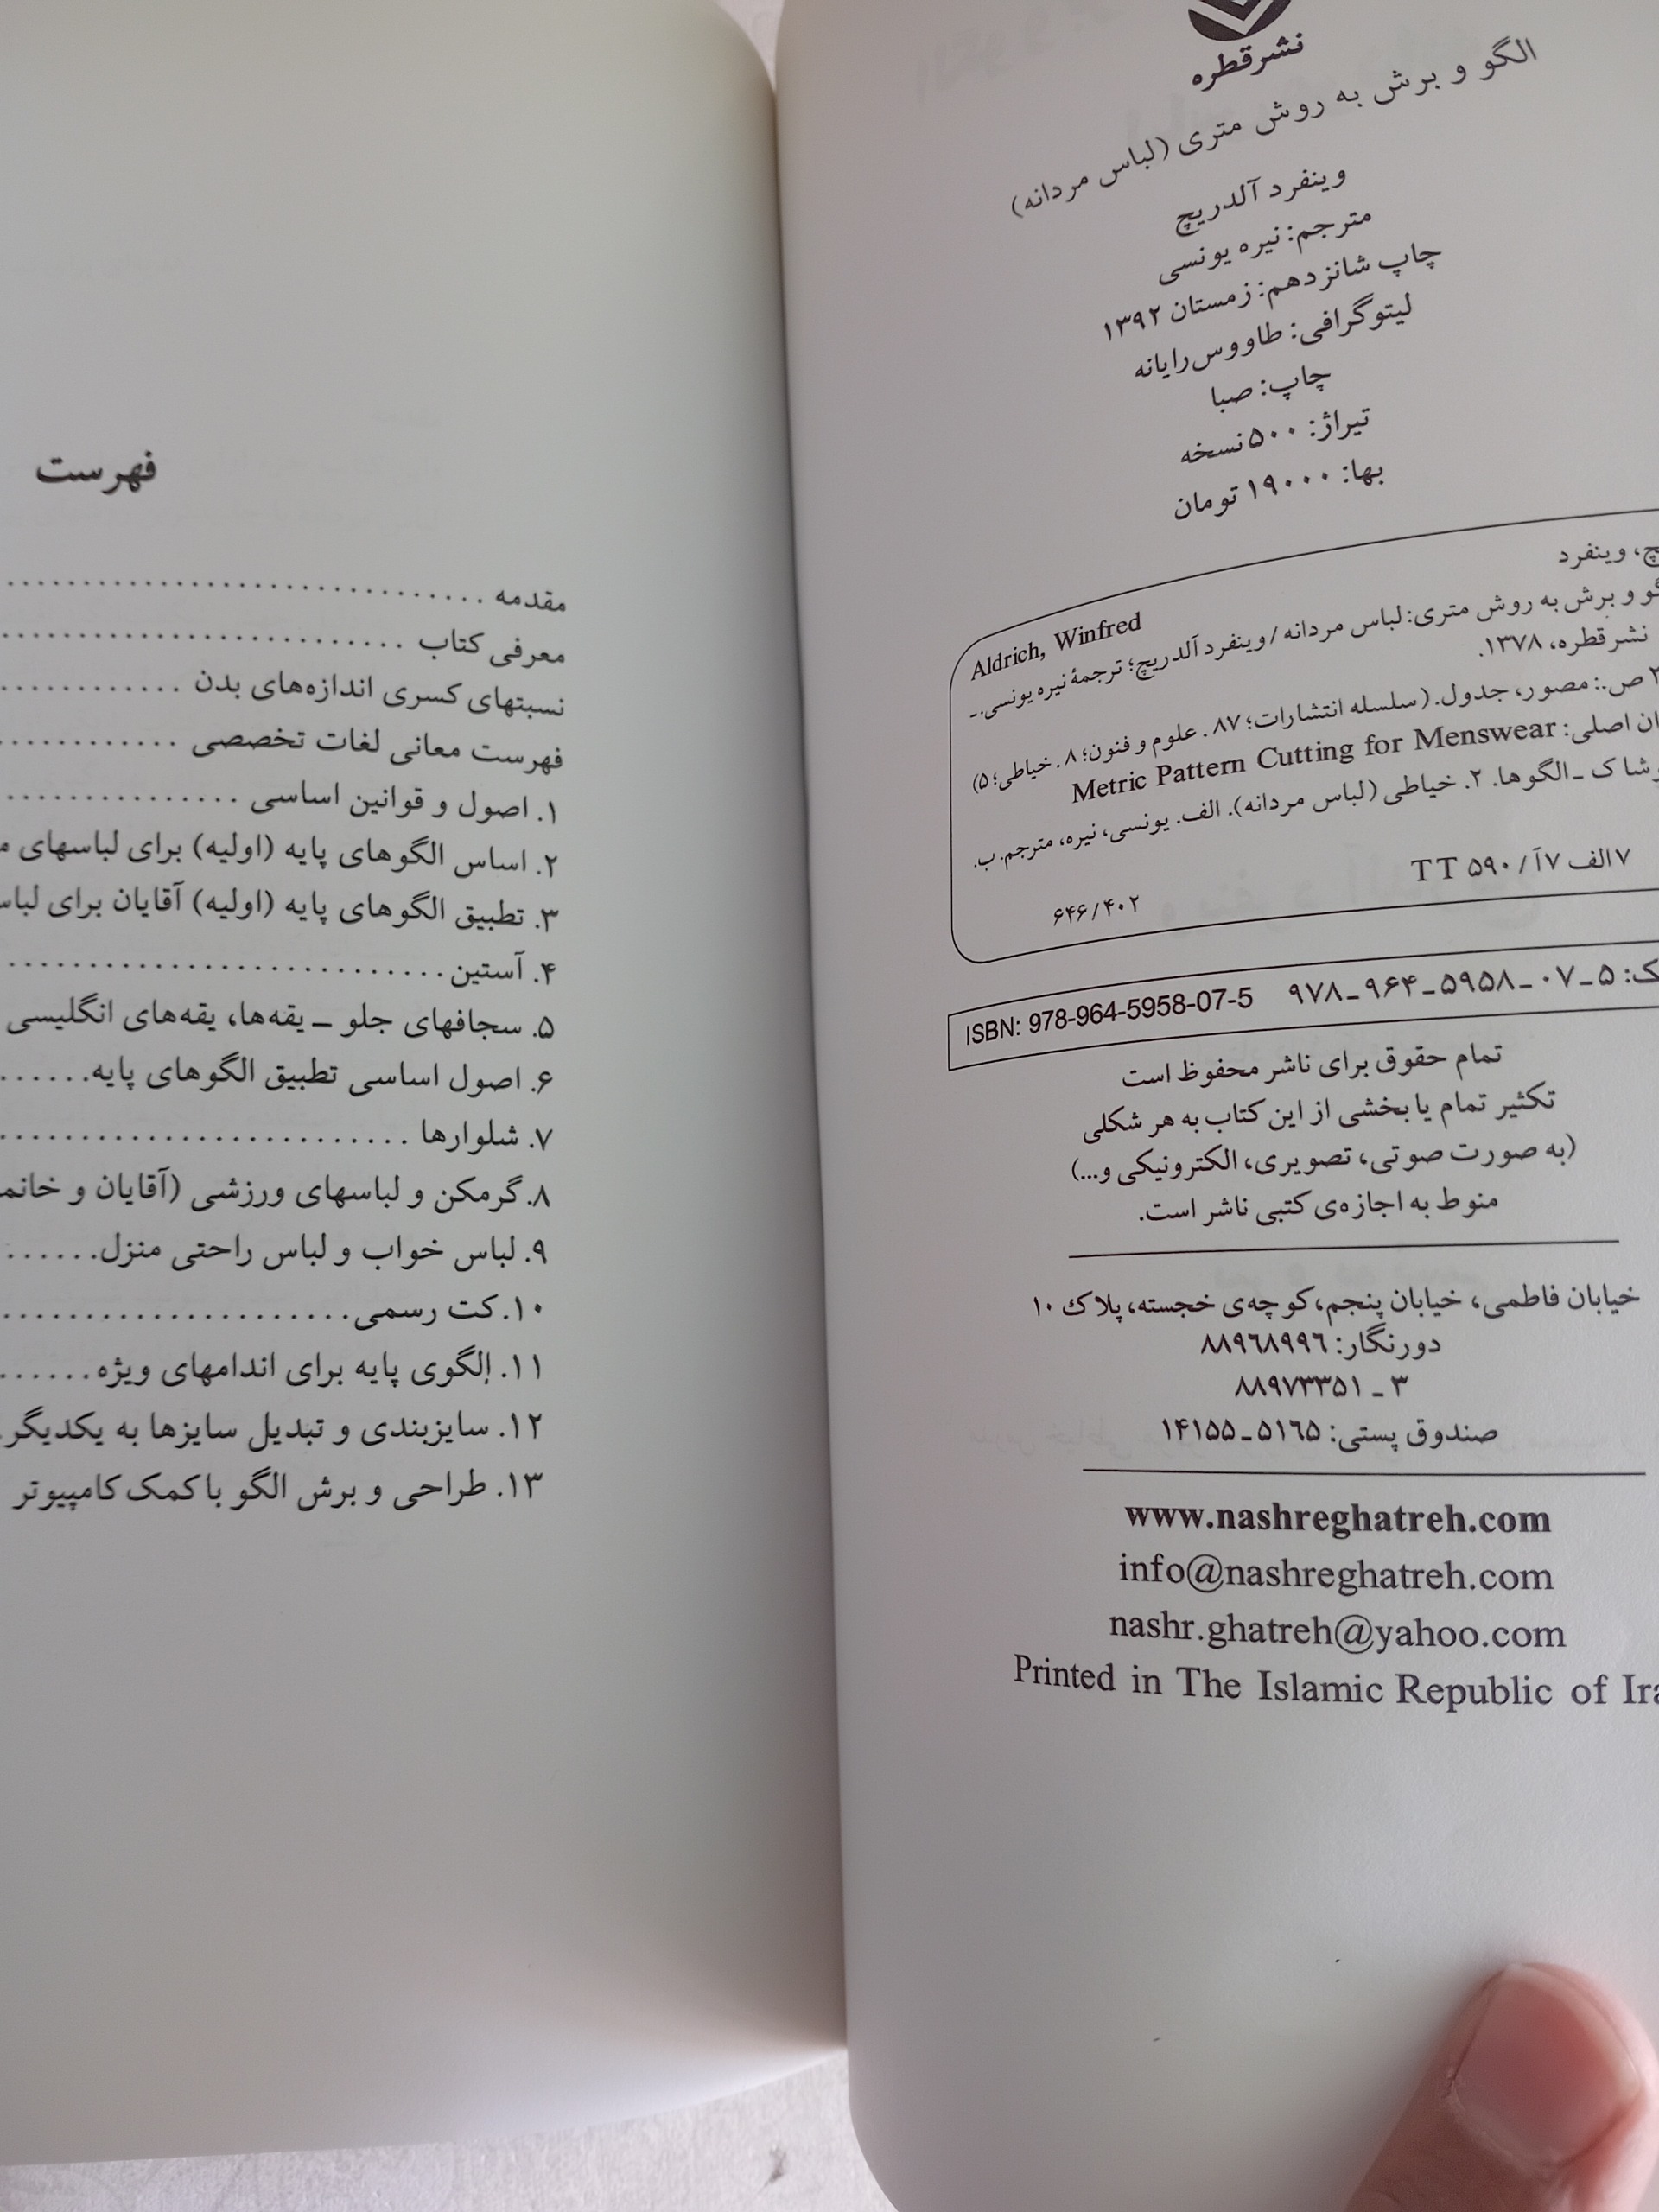 نشر قطره
الگو و برش به روش متری (لباس مردانه)
وینفرد آلدریچ
مترجم: نیره یونسی
چاپ شانزدهم: زمستان ۱۳۹۲
لیتوگرافی: طاووس رایانه
چاپ: صبا
تیراژ: ۵۰۰ نسخه
بها: ۱۹۰۰۰ تومان
، وینفرد
Aldrich, Winfred
و برش به روش متری: لباس مردانه / وینفرد آلدریچ؛ ترجمهٔ نیره یونسی. ـ
نشر قطره، ۱۳۷۸.
ص.: مصور، جدول. (سلسله انتشارات؛ ۸۷. علوم و فنون؛ ۸. خیاطی؛ ۵)
اصلی: Metric Pattern Cutting for Menswear
ـ الگوها. ۲. خیاطی (لباس مردانه). الف. یونسی، نیره، مترجم. ب.
۷ الف ۷آ / ۵۹۰ TT
۶۴۶/۴۰۲
۹۷۸ـ۹۶۴ـ۵۹۵۸ـ۰۷ـ۵ ISBN: 978-964-5958-07-5
تمام حقوق برای ناشر محفوظ است
تکثیر تمام یا بخشی از این کتاب به هر شکلی
(به صورت صوتی، تصویری، الکترونیکی و...)
منوط به اجازه‌ی کتبی ناشر است.
خیابان فاطمی، خیابان پنجم، کوچه‌ی خجسته، پلاک ۱۰
دورنگار: ۸۸۹۶۸۹۹۶
۳ ـ ۸۸۹۷۳۳۵۱
صندوق پستی: ۵۱۶۵ـ۱۴۱۵۵
www.nashreghatreh.com
info@nashreghatreh.com
nashr.ghatreh@yahoo.com
Printed in The Islamic Republic of
فهرست
مقدمه ..............................
معرفی کتاب ..........................
نسبتهای کسری اندازه‌های بدن ............
فهرست معانی لغات تخصصی ............
۱. اصول و قوانین اساسی ................
۲. اساس الگوهای پایه (اولیه) برای لباسهای
۳. تطبیق الگوهای پایه (اولیه) آقایان برای
۴. آستین ............................
۵. سجافهای جلو ــ یقه‌ها، یقه‌های انگلیسی
۶. اصول اساسی تطبیق الگوهای پایه ......
۷. شلوارها ..........................
۸. گرمکن و لباسهای ورزشی (آقایان و
۹. لباس خواب و لباس راحتی منزل ......
۱۰. کت رسمی ......................
۱۱. الگوی پایه برای اندامهای ویژه ......
۱۲. سایزبندی و تبدیل سایزها به یکدیگر.
۱۳. طراحی و برش الگو با کمک کامپیوتر